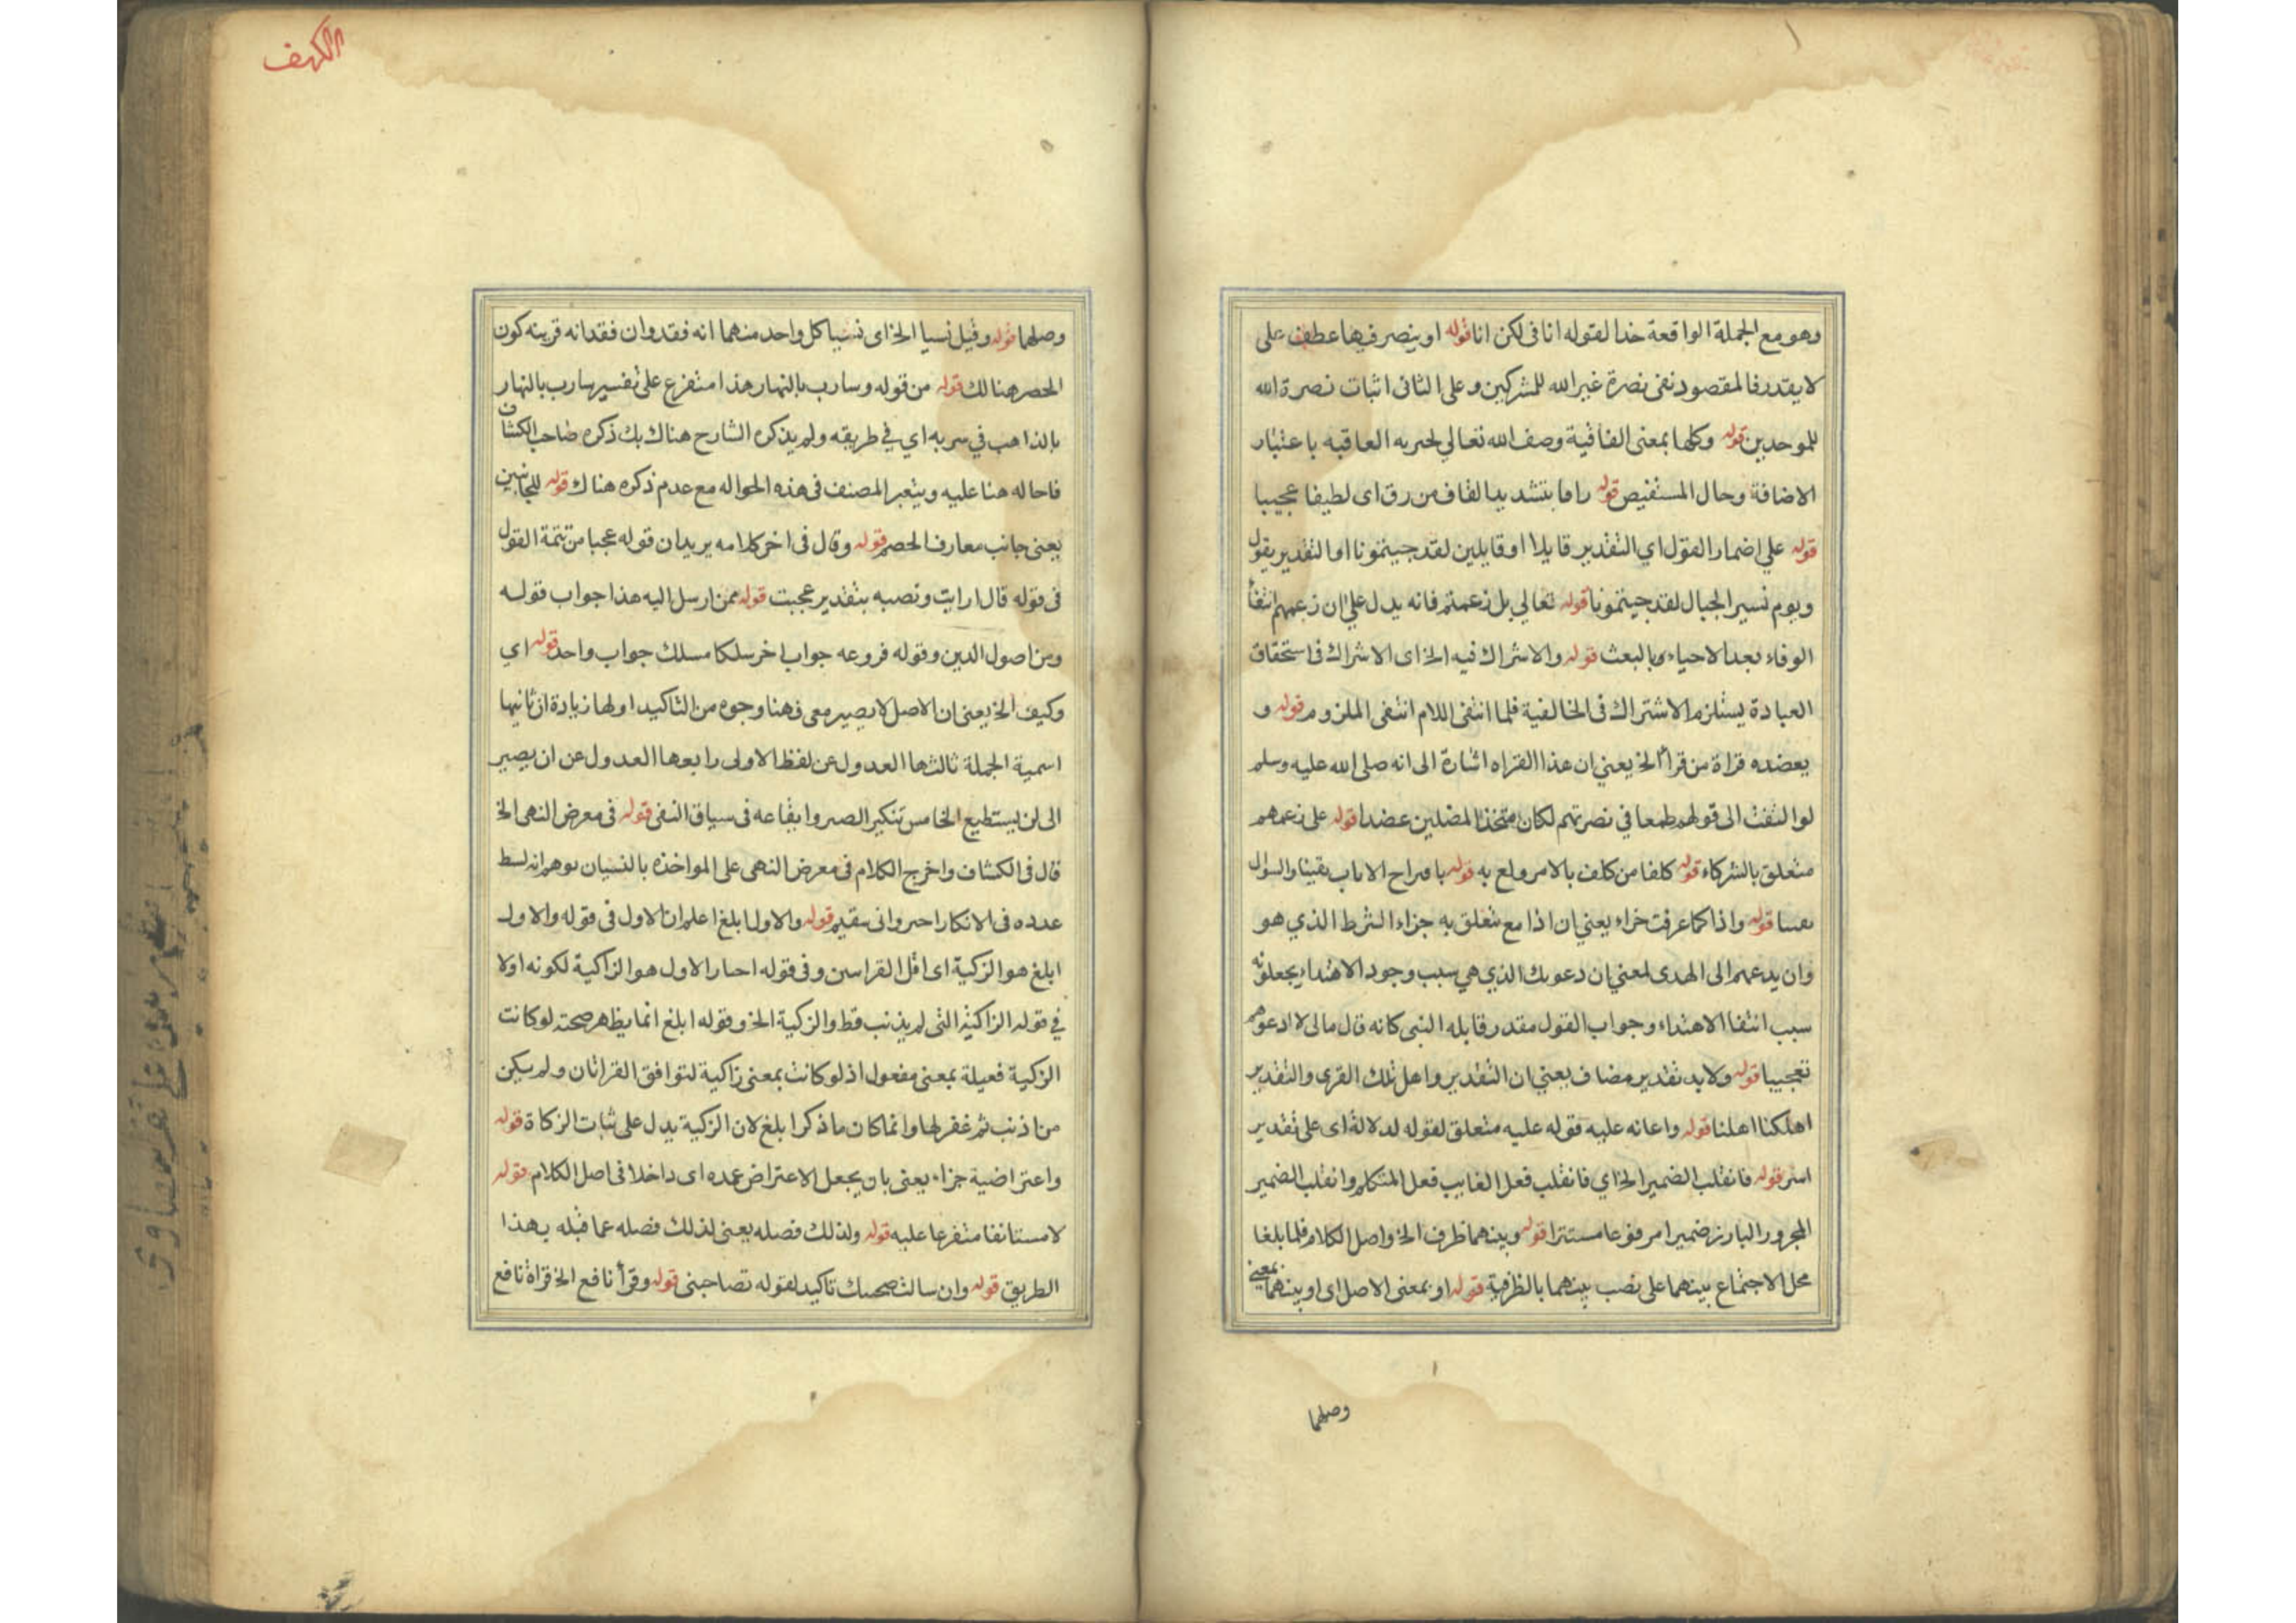 وهو مع الجملة الواقعة خدا لقوله انا فى لكن انا قوله او ينصر فيها عطف على
لا يقدر فالمقصود نفى نصرة غير الله للمشركين وعلى الثانى اثبات نصرة الله
للموحدين قوله وكلها بمعنى العاقبة وصف الله تعالي لخيريه العاقبه باعتبار
الاضافة وحال المستفيض قوله راقا بتشديد القاف من رق اى لطيفا عجيبا
قوله علي اضمار القول اي التقدير قايلا او قايلين لقد جيتمونا او التقدير يقول
ويوم نسير الجبال لقد جيتمونا قوله تعالي بل زعمتم فانه يدل علي ان زعمهم انتفأ
الوفاء بعد الاحياء وبالبعث قوله والاشراك فيه الخ اى الاشراك فى استحقاق
العبادة يستلزم الاشتراك فى الخالقية فلما انتفى اللام انتفى الملزوم قوله و
يعضده قراة من قرأ الخ يعني ان هذا القراه اشارة الى انه صلى الله عليه وسلم
لو التفت الى قولهم طمعا في نصرتهم لكان متخذا المضلين عضدا قوله على زعمهم
متعلق بالشركاء قوله كلفا من كلف بالامر ولع به قوله
قوله واذا كما عرفت جزاء يعني ان اذا مع متعلق به جزاء الشرط الذي هو
وان يدعهم الى الهدى لمعني ان دعوبك الذي هي سبب وجود الاهتداء يجعلونه
سبب انتفا الاهتداء وجواب القول مقدر قابله النبى كانه قال مالى لا ادعوهم
تعجيبا قوله ولا بد تقدير مضاف يعني ان التقدير واهل تلك القرى والتقدير
اهلكنا اهلنا قوله واعانه عليه قوله عليه متعلق لقوله لدلالة اى على تقدير
استر قوله فانقلب الضمير الخ اي فانقلب فعل الغايب فعل المتكلم وانقلب الضمير
المجرور البارز ضميرا مرفوعا مستترا قوله وبينهما ظرف الخ واصل الكلام فلما بلغا
محل الاجتماع بينهما على نصب بينهما بالظرفية قوله او بمعنى الاصل اى او بينهما بمعنى
وصلهما
الكهف
وصلهما قوله وقيل نسيا الخ اى نسيا كل واحد منهما انه فقد وان فقدانه قرينه كون
الحصر هنالك قوله من قوله وسارب بالنهار هذا متفرع على تفسير سارب بالنهار
بالذاهب في سربه اي في طريقه ولم يذكره الشارح هناك بك ذكره صاحب الكشاف
فاحاله هنا عليه ويتعبر المصنف فى هذه الحواله مع عدم ذكره هناك قوله للجانبين
يعنى جانب معارف الحصر قوله وقال فى اخر كلامه يريد ان قوله عجبا من تتمة القول
فى قوله قال ارايت ونصبه بتقدير عجبت قوله ممن ارسل اليه هذا جواب قوله
ومن اصول الدين وقوله فروعه جواب اخر سلكا مسلك جواب واحد قوله اي
وكيف الخ يعنى ان الاصل لا يصير معى فهنا وجوه من التاكيد اولها زيادة ان ثانيها
اسمية الجملة ثالثها العدول عن لفظ الاولى رابعها العدول عن ان يصير
الى لن يستطيع الخامس تنكير الصبر وايقاعه فى سياق النفى قوله فى معرض النهى الخ
قال فى الكشاف واخرج الكلام فى معرض النهى على المواخذه بالنسيان
عدده فى الانكار قوله والاول ابلغ اعلم ان الاول فى قوله والاول
ابلغ هو الزكية اى اقل القراسن وفى قوله احبار الاول هو الزاكية لكونه اولا
في قوله الزاكية التى لم يذنب قط والزكية الخ وقوله ابلغ انما يظهر صحته لو كانت
الزكية فعيلة بمعنى مفعول اذ لو كانت بمعنى زاكية لتوافق القراتان ولم يكن
من اذنب ثم غفر لها وانما كان ما ذكر ابلغ لان الزكية يدل على ثبات الزكاة قوله
واعتراضية جزاء يعنى بان يجعل الاعتراض عمده اى داخلا فى اصل الكلام قوله
لا مستانفا متفرعا عليه قوله ولذلك فصله يعنى لذلك فصله عما قبله بهذا
الطريق قوله وان سالت صحبتك تاكيد لقوله تصاحبنى قوله وقرأ نافع الخ قراة نافع